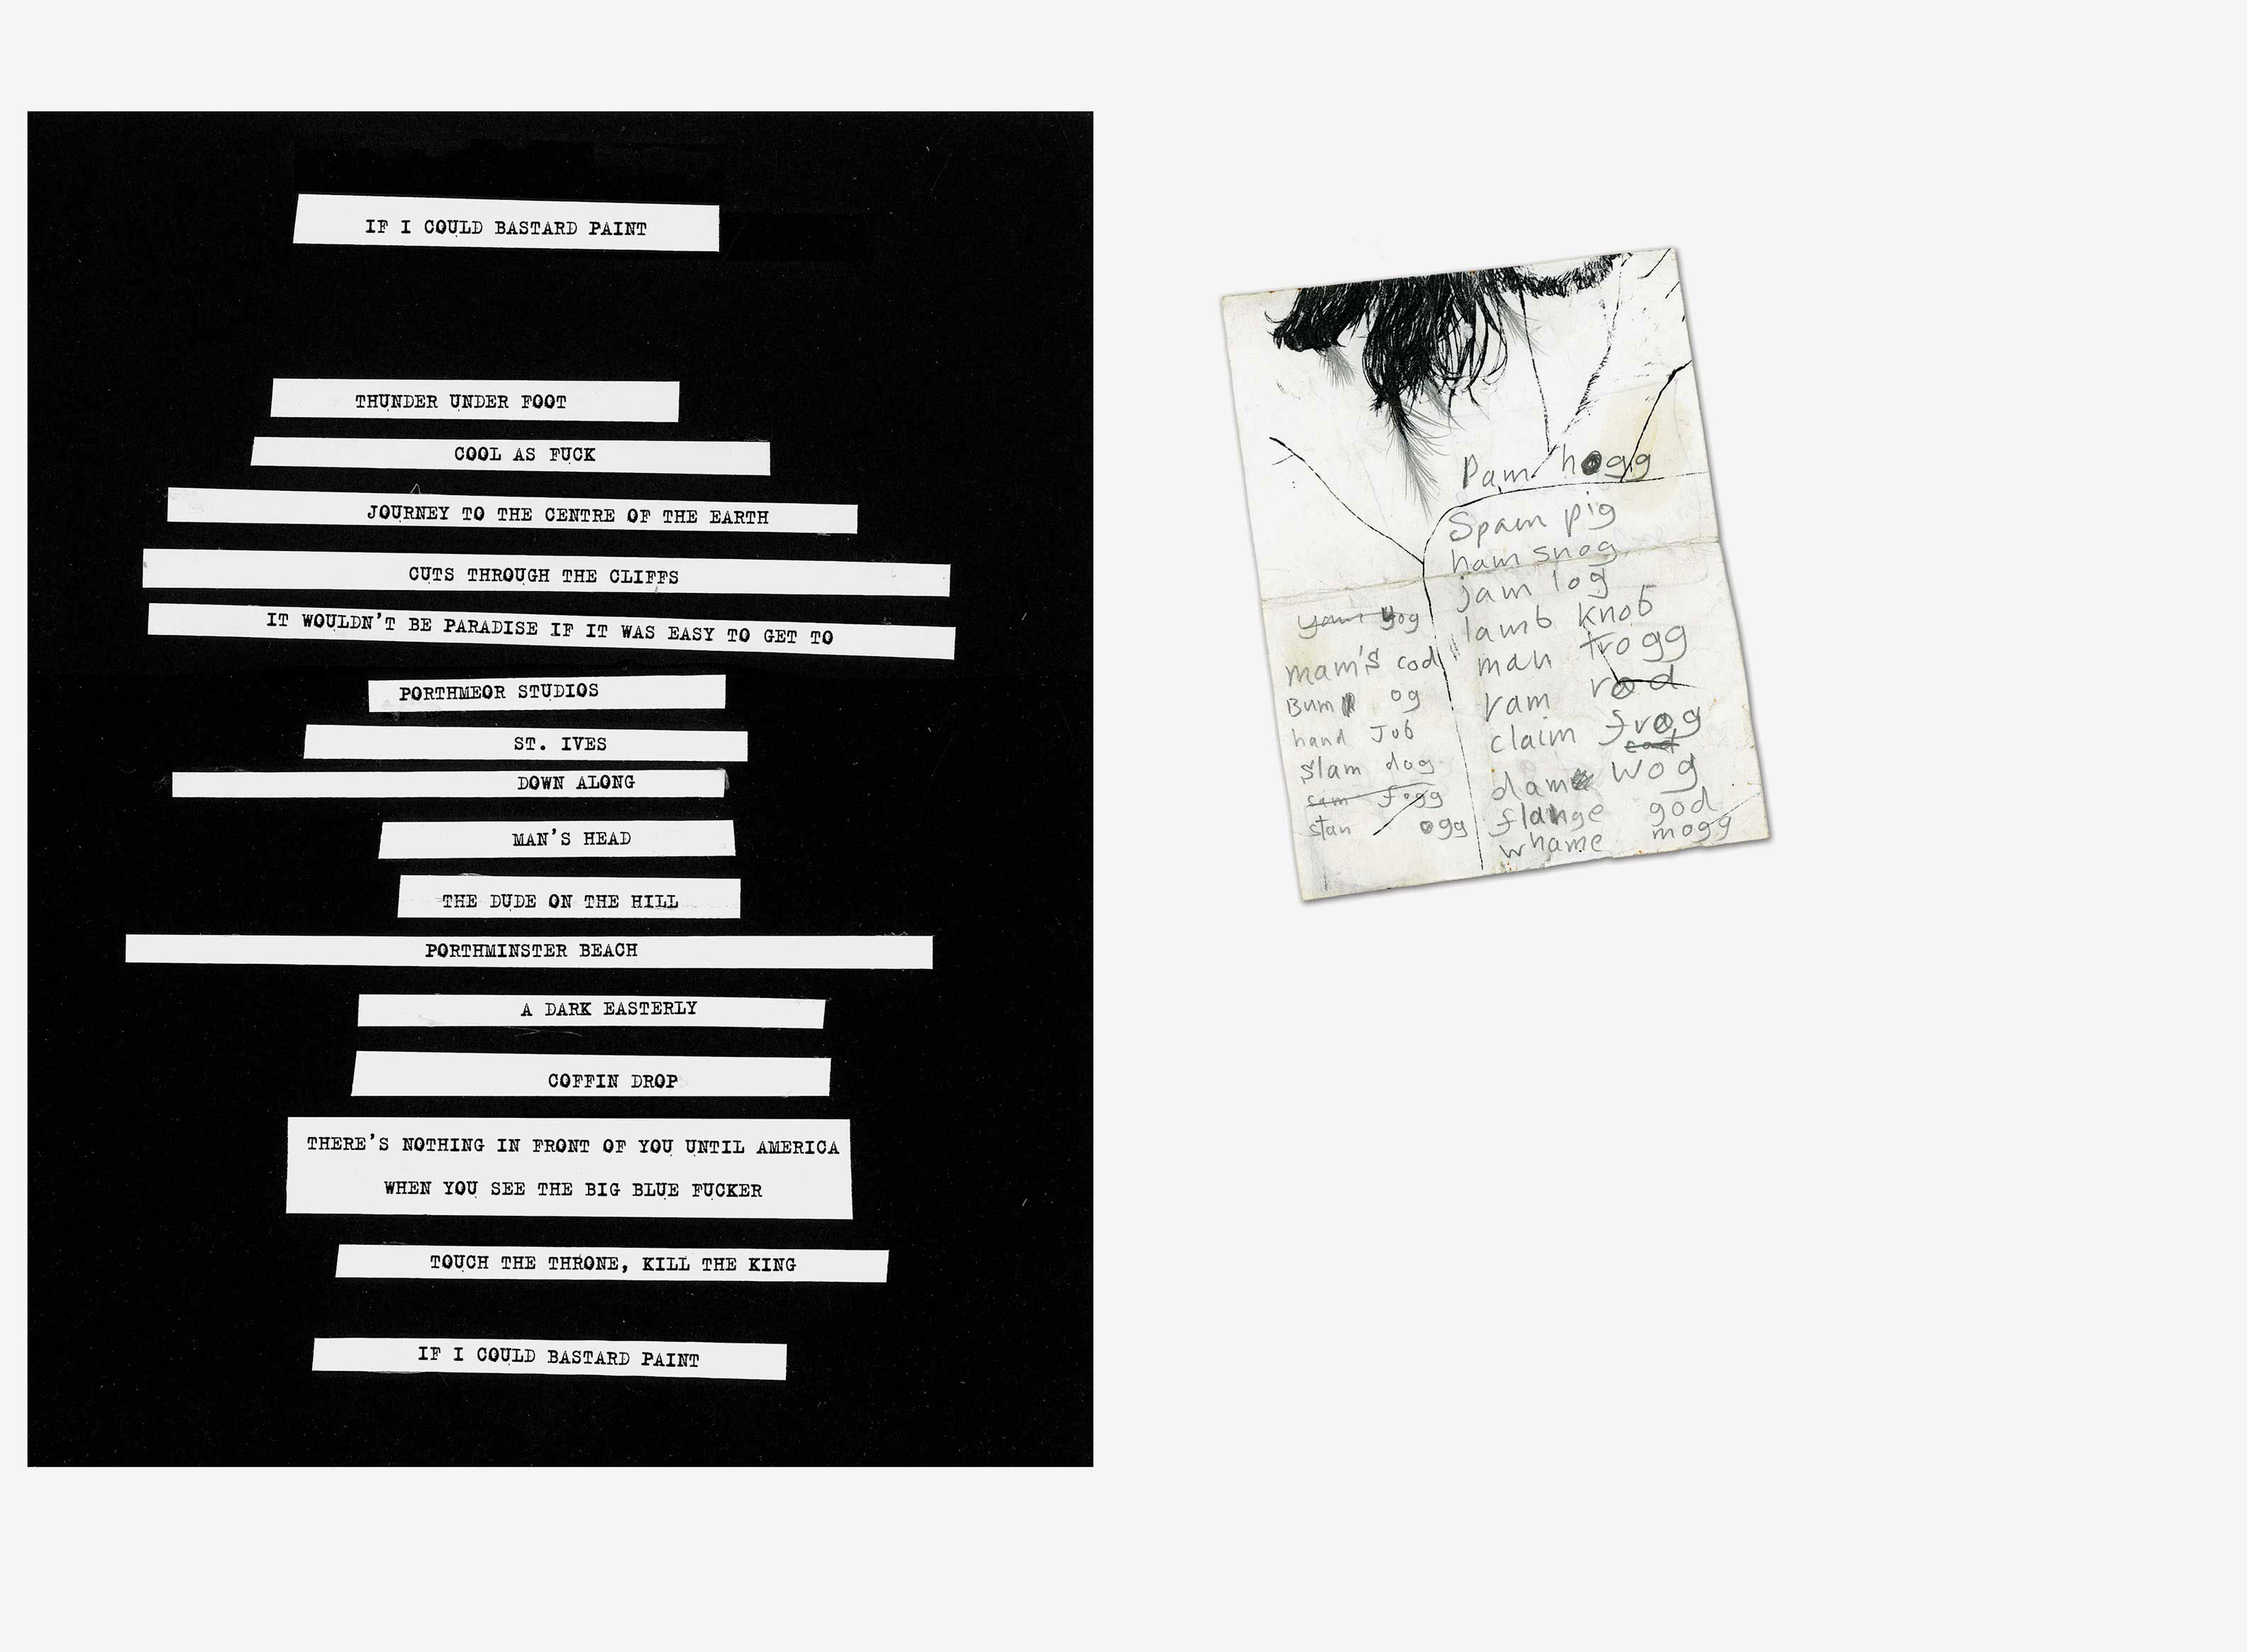 IF I COULD BASTARD PAINT
THUNDER UNDER FOOT
COOL AS FUCK
JOURNEY TO THE CENTRE OF THE EARTH
CUTS THROUGH THE CLIFFS
IT WOULDN'T BE PARADISE IF IT WAS EASY TO GET TO
PORTHMEOR STUDIOS
ST. IVES
DOWN ALONG
MAN'S HEAD
THE DUDE ON THE HILL
PORTHMINSTER BEACH
A DARK EASTERLY
COFFIN DROP
THERE'S NOTHING IN FRONT OF YOU UNTIL AMERICA
WHEN YOU SEE THE BIG BLUE FUCKER
TOUCH THE THRONE, KILL THE KING
IF I COULD BASTARD PAINT
Pam hogg
Spam pig
ham snog
jam log
lamb knob
man frogg
ram rod
claim frog
dam wog
flange god
whame mogg
yam yog
mam's cod
Bum og
hand Job
slam dog
sam fogg
stan ogg